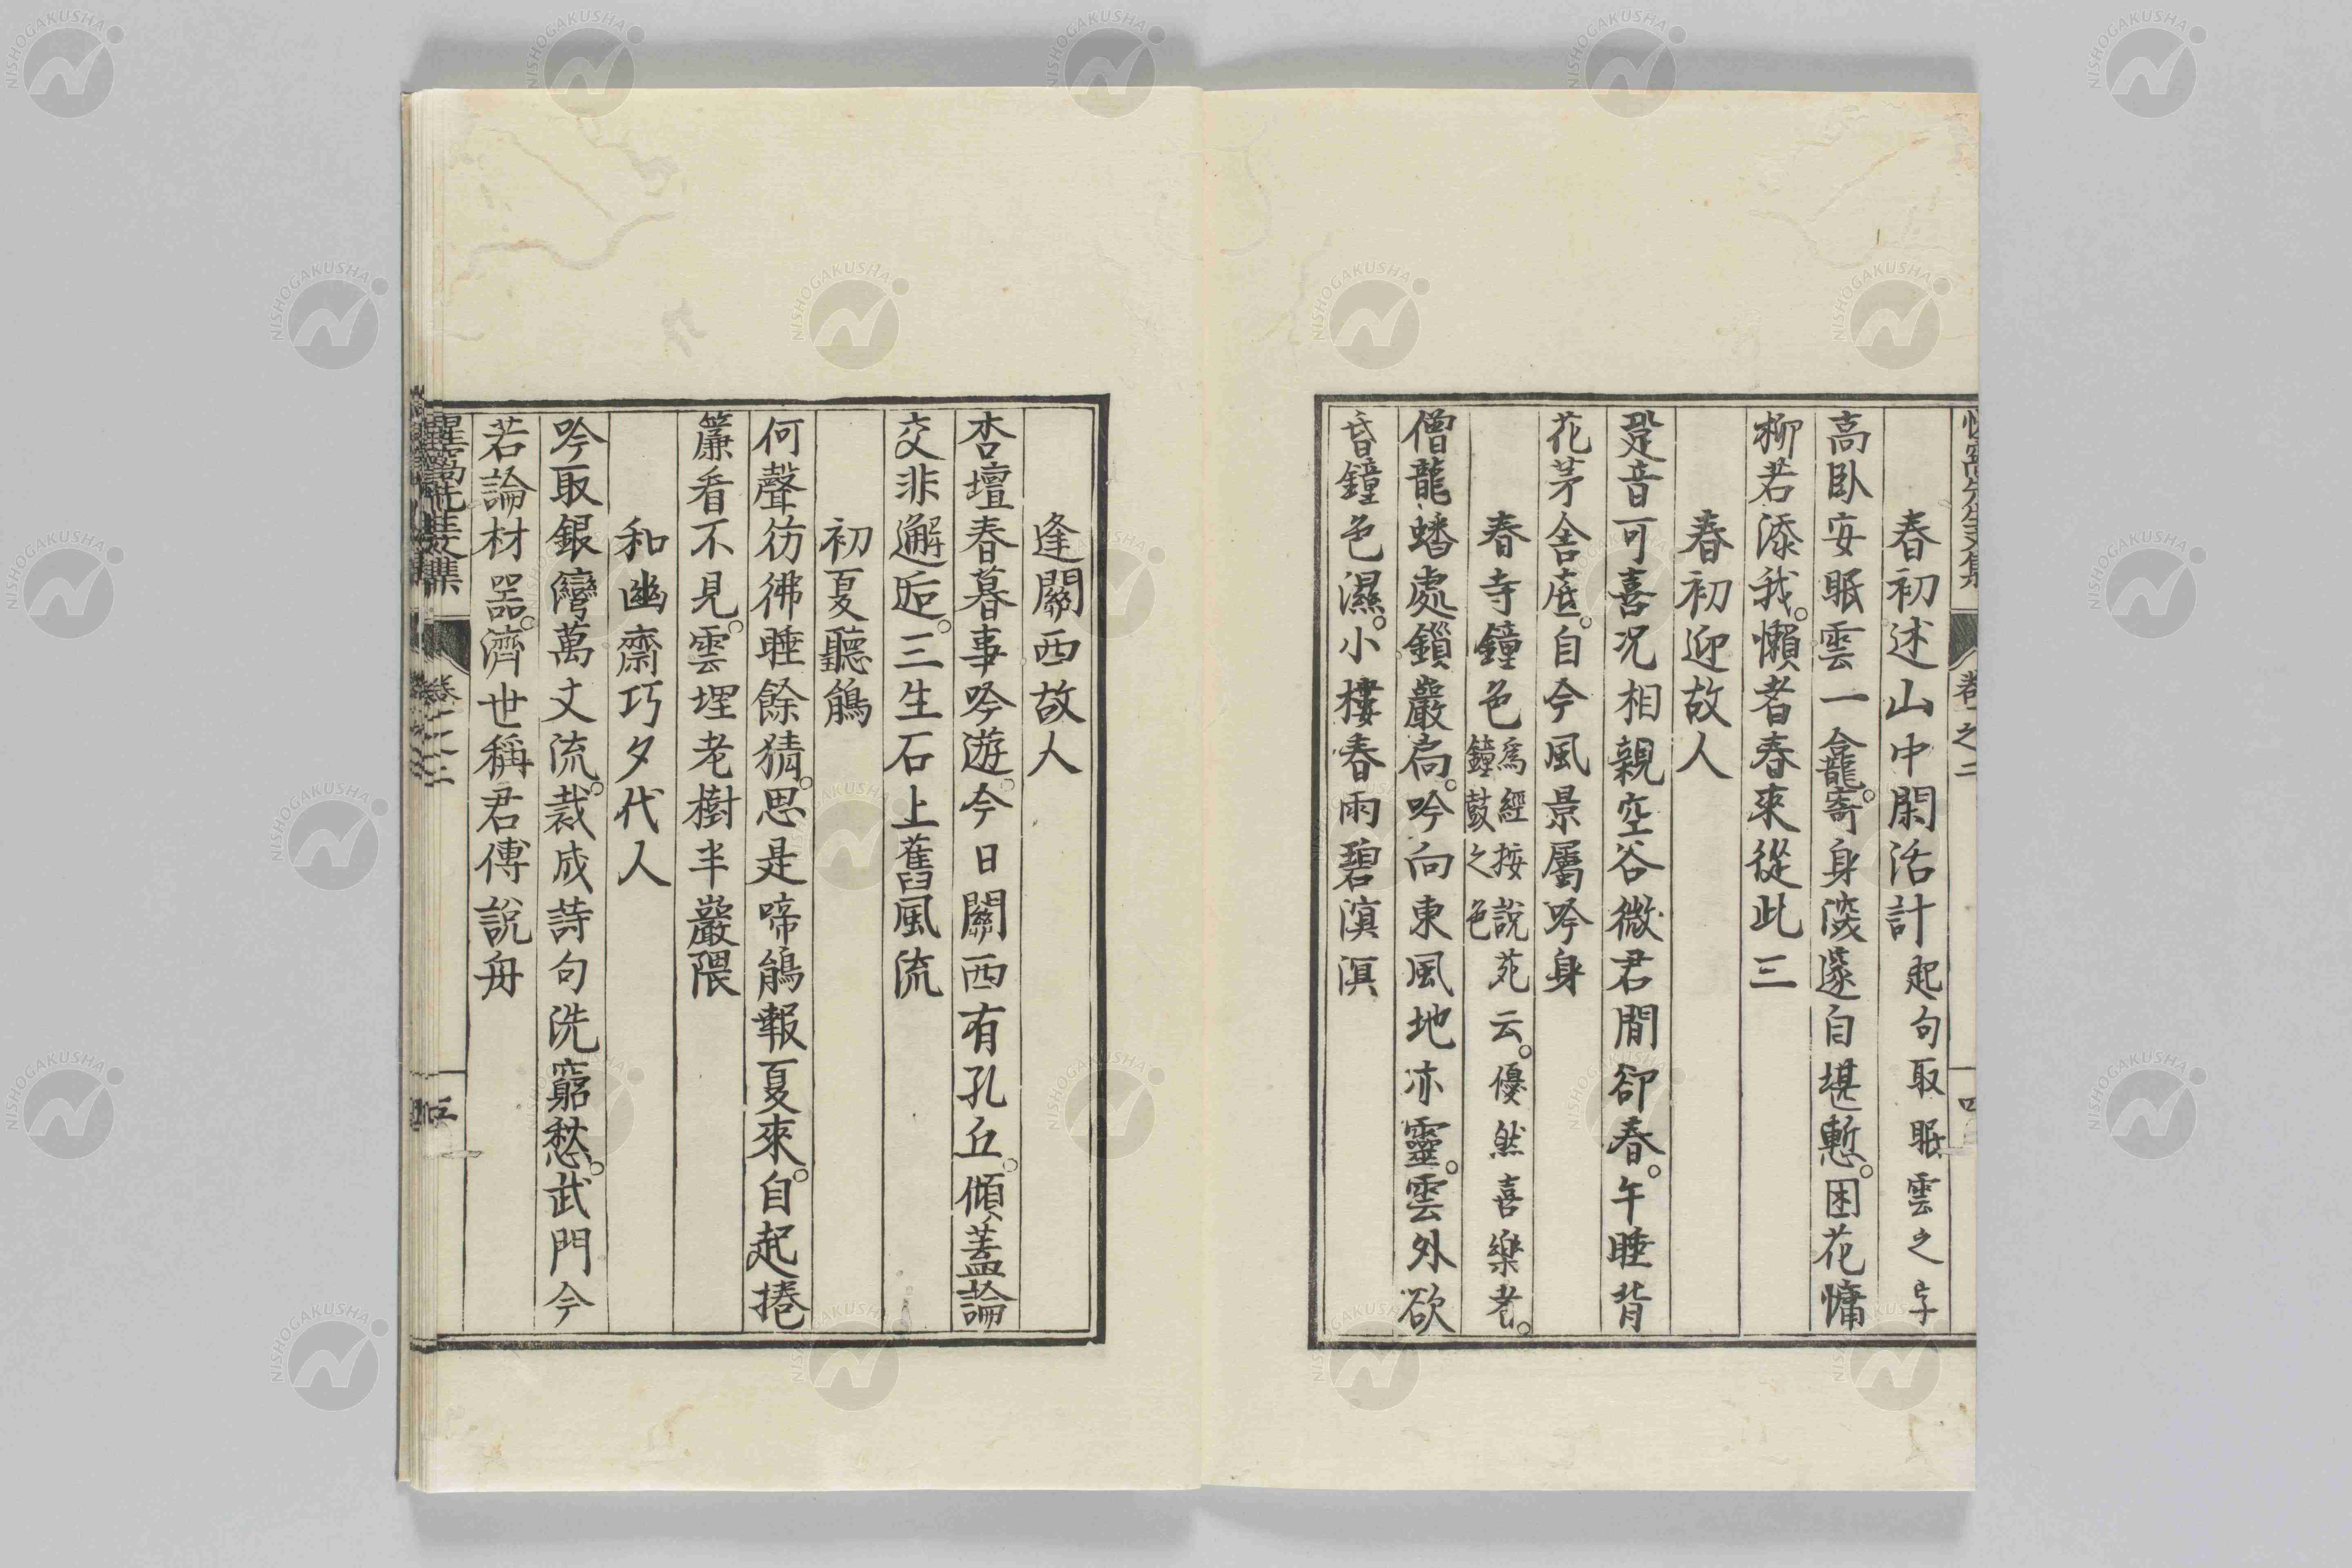 惺窩先生文集　卷之二　四
春初述山中閑活計 起句取眠雲之字
高臥安眠雲一龕。寄身深邃自堪慙。困花慵
柳若添我。懶者春來從此三
春初迎故人
跫音可喜況相親空谷微君閒卻春。午睡背
花茅舍底。自今風景屬吟身
春寺鐘色 爲經按說苑云。優然喜樂者。鐘鼓之色
僧龍蟠處鎖巖扃。吟向東風地亦靈。雲外欲
昏鐘色濕。小樓春雨碧溟溟
逢關西故人
杏壇春暮事吟遊。今日關西有孔丘。傾蓋論
交非邂逅。三生石上舊風流
初夏聽鵑
何聲彷彿睡餘猜。思是啼鵑報夏來。自起捲
簾看不見。雲埋老樹半巖隈
和幽齋巧夕代人
吟取銀灣萬丈流。裁成詩句洗窮愁。武門今
若論材器。濟世稱君傅說舟